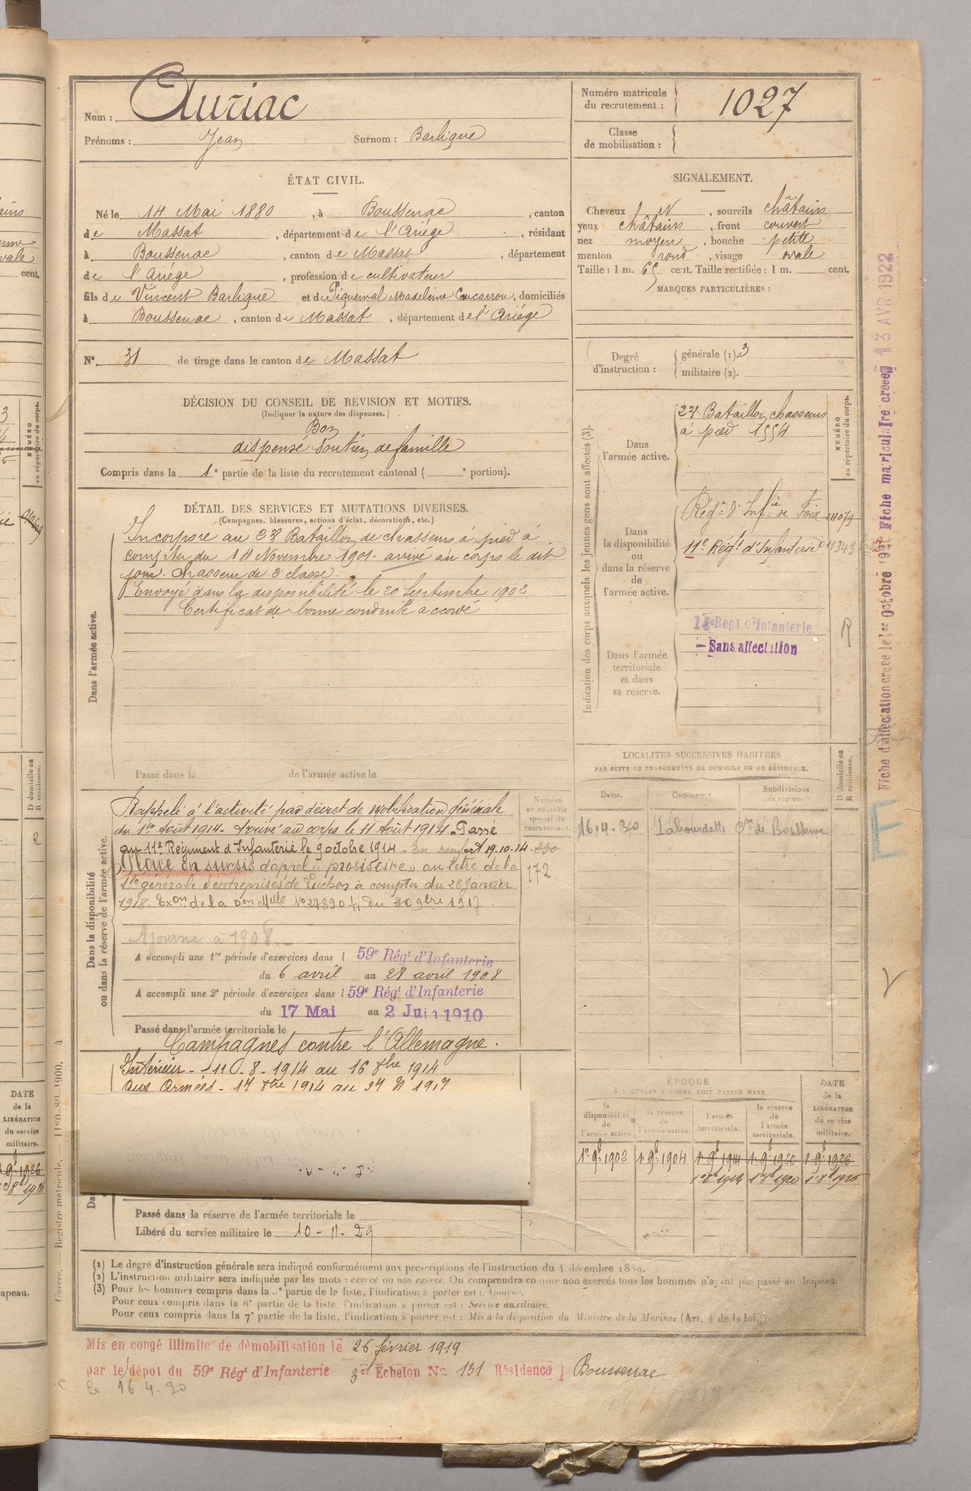 Nom : Auriac
Prénoms : Jean Surnom : Barligue
ÉTAT CIVIL.
Né le 14 Mai 1880, à Boussenac, canton
de Massat, département de l'Ariège, résidant
à Boussenac, canton de Massat, département
de l'Ariège, profession de cultivateur
fils de Vincent Barligue et de Piquemal Madeleine Cucarrou, domiciliés
à Boussenac, canton de Massat, département de l'Ariège
N° 31 de tirage dans le canton de Massat
DÉCISION DU CONSEIL DE REVISION ET MOTIFS.
(Indiquer la nature des dispenses.)
Bon
dispensé Soutien de famille
Compris dans la 1e partie de la liste du recrutement cantonal ( e portion).
DÉTAIL DES SERVICES ET MUTATIONS DIVERSES.
(Campagnes, blessures, actions d'éclat, décorations, etc.)
Dans l'armée active.
Incorporé au 27e Bataillon de chasseurs à pied à
compter du 14 Novembre 1901. arrivé au corps le dit
jour. Chasseur de 2e classe.
Envoyé dans la disponibilité le 20 Septembre 1902
Certificat de bonne conduite accordé
Passé dans la de l'armée active le
Dans la disponibilité
ou dans la réserve de l'armée active.
Numéro
au contrôle
spécial du
recrutement.
Rappelé à l'activité par décret de mobilisation générale
du 1er Août 1914. Arrivé au corps le 11 Août 1914. Passé
au 11e Régiment d'Infanterie le 9 octobre 1914 - En renfort 19.10.14
Placé en sursis d'appel "provisoire" au titre de la
Sté générale d'entreprises de Luchon à compter du 28 Janvier
172
Ajourné à 1908.
A accompli une 1re période d'exercices dans l 59e Régt d'Infanterie
du 6 avril au 28 avril 1908
A accompli une 2e période d'exercices dans l 59e Régt d'Infanterie
du 17 Mai au 2 Juin 1910
Passé dans l'armée territoriale le
Campagnes contre l'Allemagne.
Intérieur - 11.8.1914 au 16 8bre 1914
Aux Armées - 17 8bre 1914 au 27
Passé dans la réserve de l'armée territoriale le
Libéré du service militaire le 10-11-29
Numéro matricule
du recrutement : 1027
Classe
de mobilisation :
SIGNALEMENT.
Cheveux et, sourcils châtains
yeux châtains, front couvert
nez moyen, bouche petite
menton rond, visage ovale
Taille : 1 m. 65 cent. Taille rectifiée : 1 m. cent.
MARQUES PARTICULIÈRES :
Degré
d'instruction :
générale (1). 3
militaire (2).
Indication des corps auxquels les jeunes gens sont affectés (3).
NUMÉRO
au répertoire du corps.
Dans
l'armée active.
27e Bataillon chasseurs
à pied 1554
Dans
la disponibilité
ou
dans la réserve
de
l'armée active.
Régt d'Infie de Foix
11e Régt d'Infanterie
Dans l'armée
territoriale
et dans
sa réserve.
Régt d'Infanterie
Sans affectation
R
LOCALITÉS SUCCESSIVES HABITÉES
PAR SUITE DE CHANGEMENTS DE DOMICILE OU DE RÉSIDENCE.
D domicile ou
R résidence.
Dates. Communes. Subdivisions
de région.
16.4.30 Lahourdette Cne de Boussenac
ÉPOQUE
À LAQUELLE L'HOMME DOIT PASSER DANS
la
disponibilité
de
l'armée active.
la réserve
de
l'armée active.
l'armée
territoriale.
la réserve
de
l'armée
territoriale.
DATE
de la
LIBÉRATION
du service
militaire.
1er 9b 1902 1er 9b 1904 1er 9b 1914 1er 9b 1920 1er 9b 1926
(1) Le degré d'instruction générale sera indiqué conformément aux prescriptions de l'instruction du 4 décembre 1889.
(2) L'instruction militaire sera indiquée par les mots : exercé ou non exercé. On comprendra comme non exercés tous les hommes n'ayant pas passé au drapeau.
(3) Pour les hommes compris dans la partie de la liste, l'indication à porter est : Ajourné.
Pour ceux compris dans la 6e partie de la liste, l'indication à porter est : Service auxiliaire.
Pour ceux compris dans la 7e partie de la liste, l'indication à porter est : Mis à la disposition du Ministre de la Marine (Art. 4 de la loi.)
Mis en congé illimité de démobilisation le 26 février 1919
par le dépôt du 59e Régt d'Infanterie 3e Echelon No 131 Résidence Boussenac
le 16.4.30
Fiche d'affectation créée le 1er Octobre 1921 Fiche matriculaire créée 13 AVR 1922
Guerre. — Registre matricule.
DATE
de la
LIBÉRATION
du service
militaire.